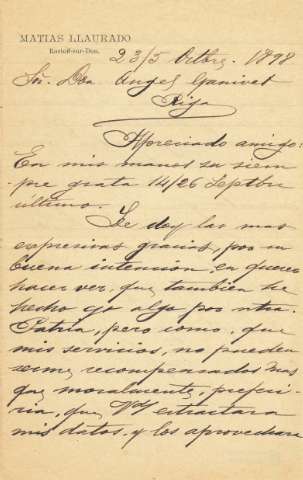 MATIAS LLAURADO
Rostoff-sur-Don.
23/5 Octbre. 1898
Sr. Don Angel Ganivet
Riga
Apreciado amigo:
En mis manos su siem
pre grata 14/26 Septbre
último.
Le doy las mas
expresivas gracias, por su
buena intención, en querer
hacer ver, que tambien he
hecho yo algo por ntra.
Patria, pero como, que
mis servicios, no pueden
serme recompensados mas
que moralmente, preferi-
ria, que Vd extractara
mis datos y los aprovechara